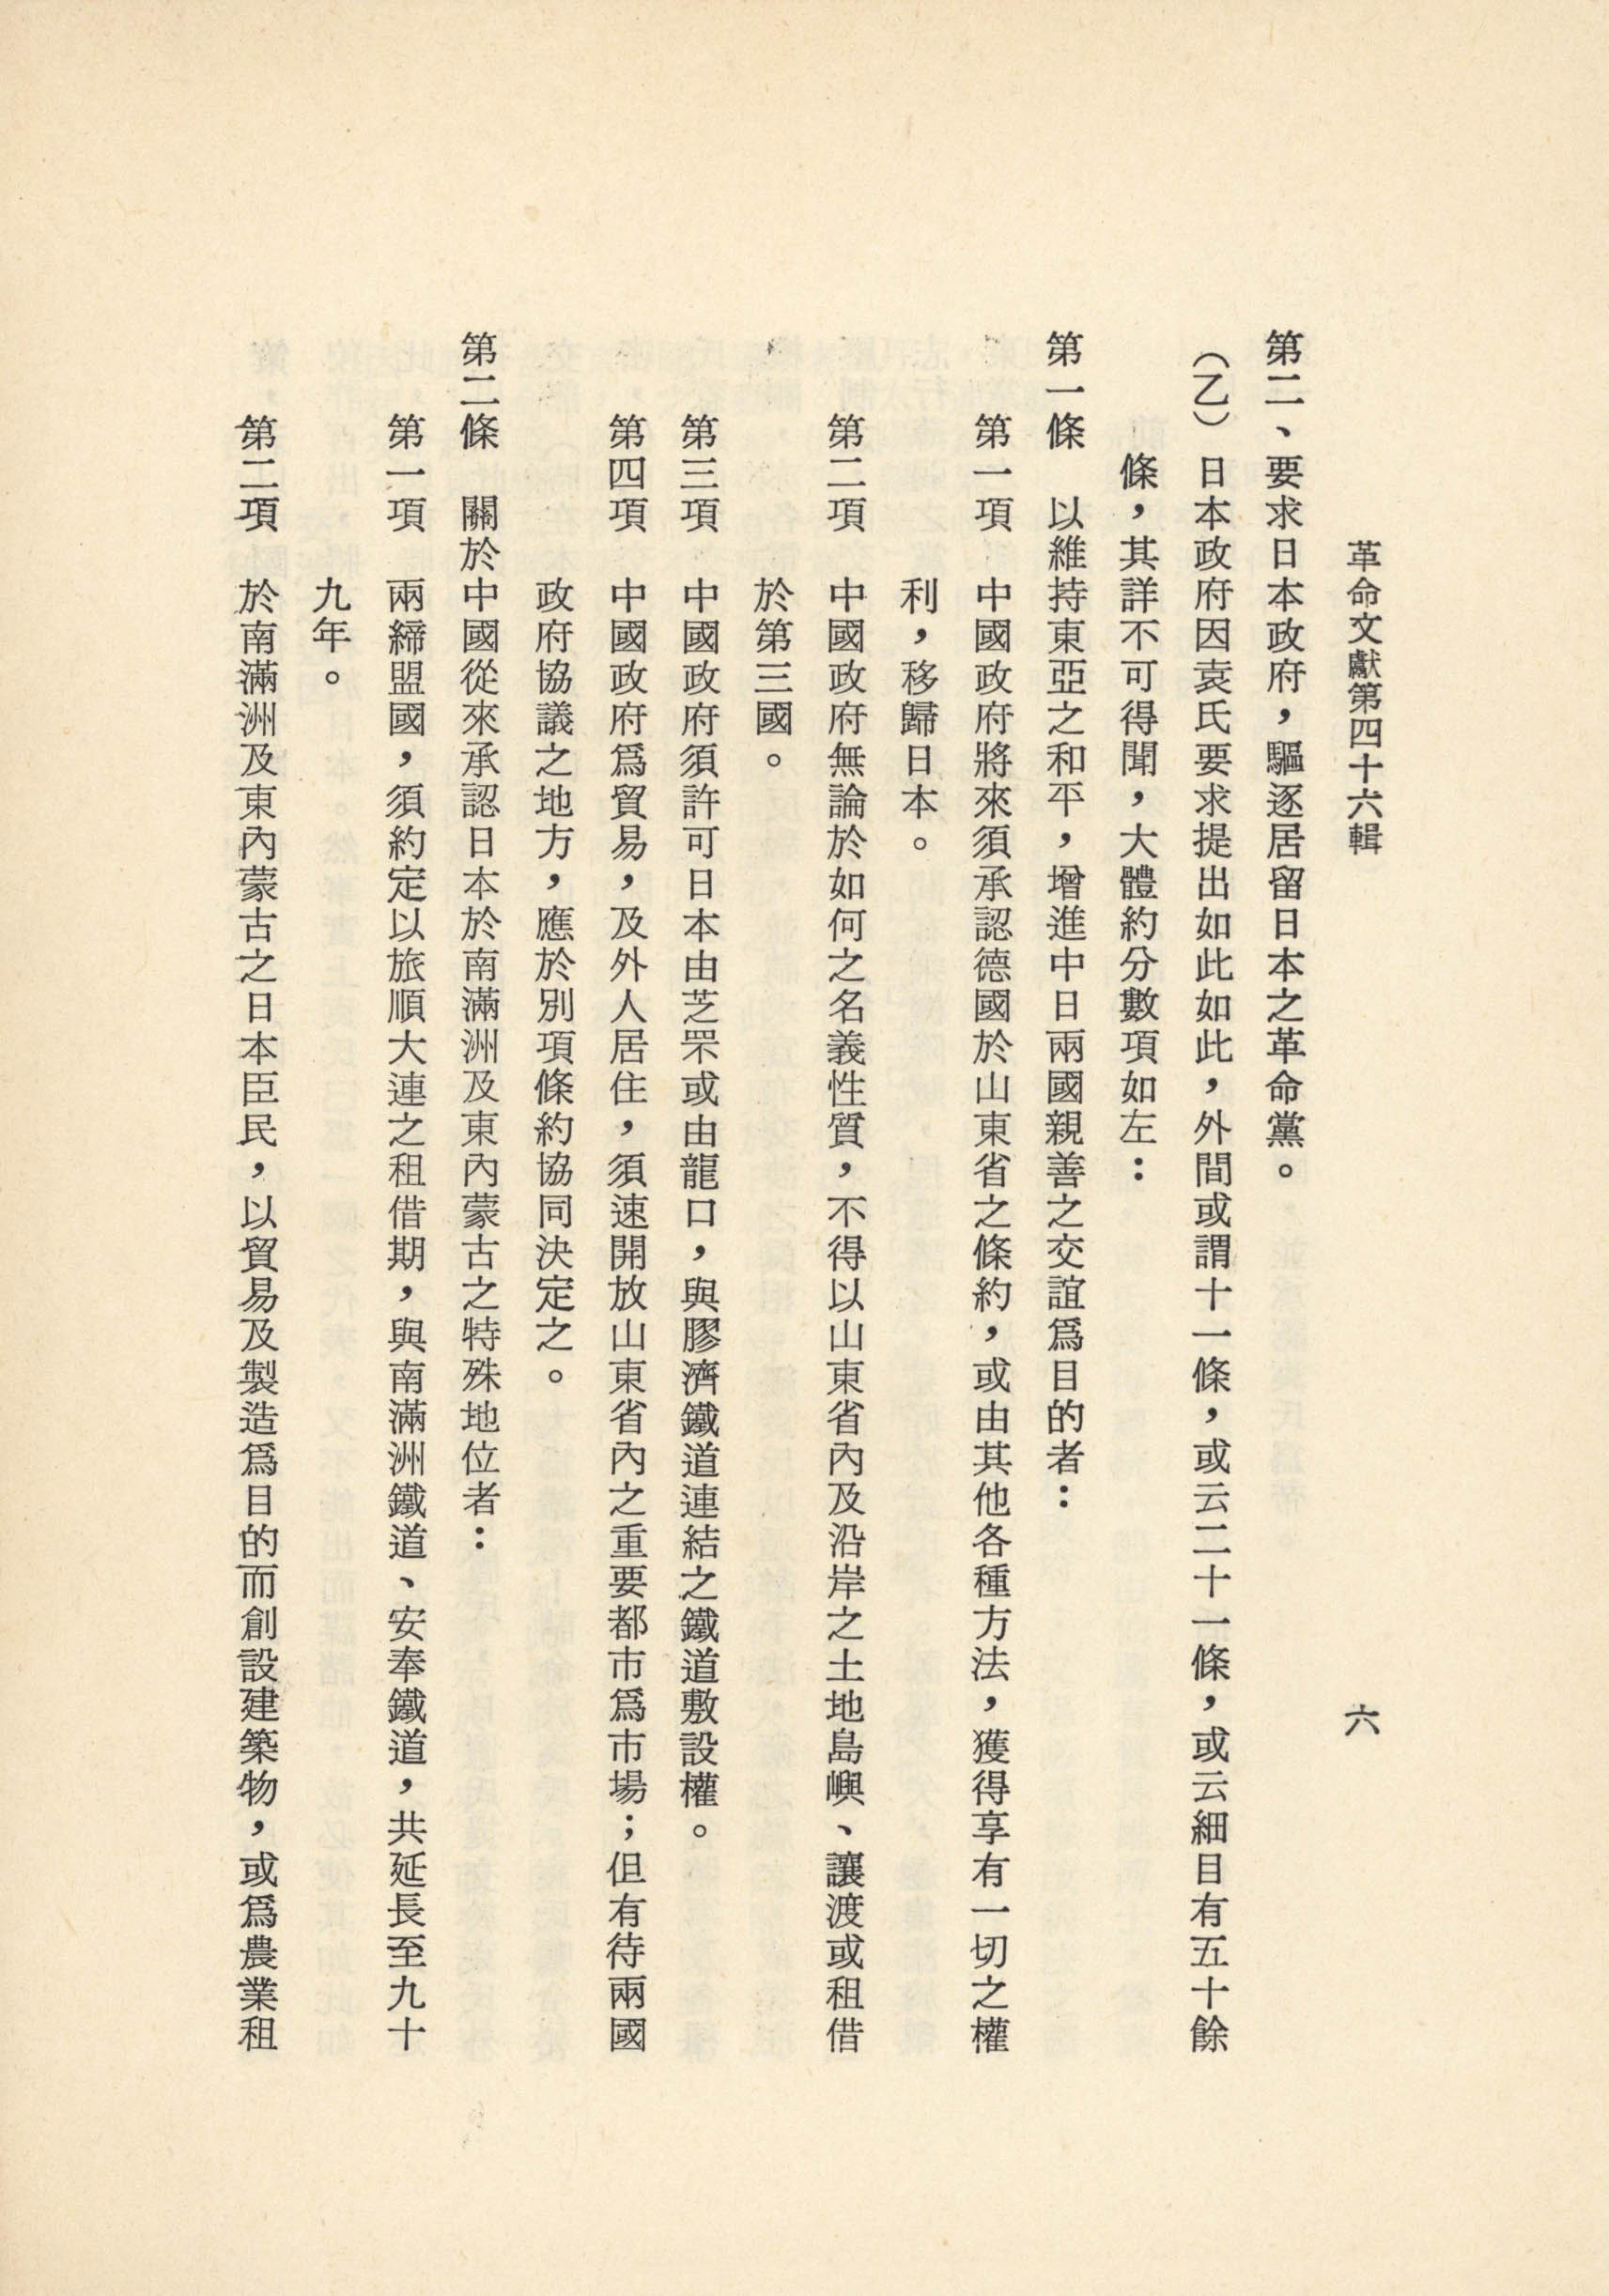 革命文獻第四十六輯
六
第二、要求日本政府，驅逐居留日本之革命黨。
（乙）日本政府因袁氏要求提出如此如此，外間或謂十一條，或云二十一條，或云細目有五十餘
條，其詳不可得聞，大體約分數項如左：
第一條　以維持東亞之和平，增進中日兩國親善之交誼爲目的者：
第一項　中國政府將來須承認德國於山東省之條約，或由其他各種方法，獲得享有一切之權
利，移歸日本。
第二項　中國政府無論於如何之名義性質，不得以山東省內及沿岸之土地島嶼、讓渡或租借
於第三國。
第三項　中國政府須許可日本由芝罘或由龍口，與膠濟鐵道連結之鐵道敷設權。
第四項　中國政府爲貿易，及外人居住，須速開放山東省內之重要都市爲市場；但有待兩國
政府協議之地方，應於別項條約協同決定之。
第二條　關於中國從來承認日本於南滿洲及東內蒙古之特殊地位者：
第一項　兩締盟國，須約定以旅順大連之租借期，與南滿洲鐵道、安奉鐵道，共延長至九十
九年。
第二項　於南滿洲及東內蒙古之日本臣民，以貿易及製造爲目的而創設建築物，或爲農業租